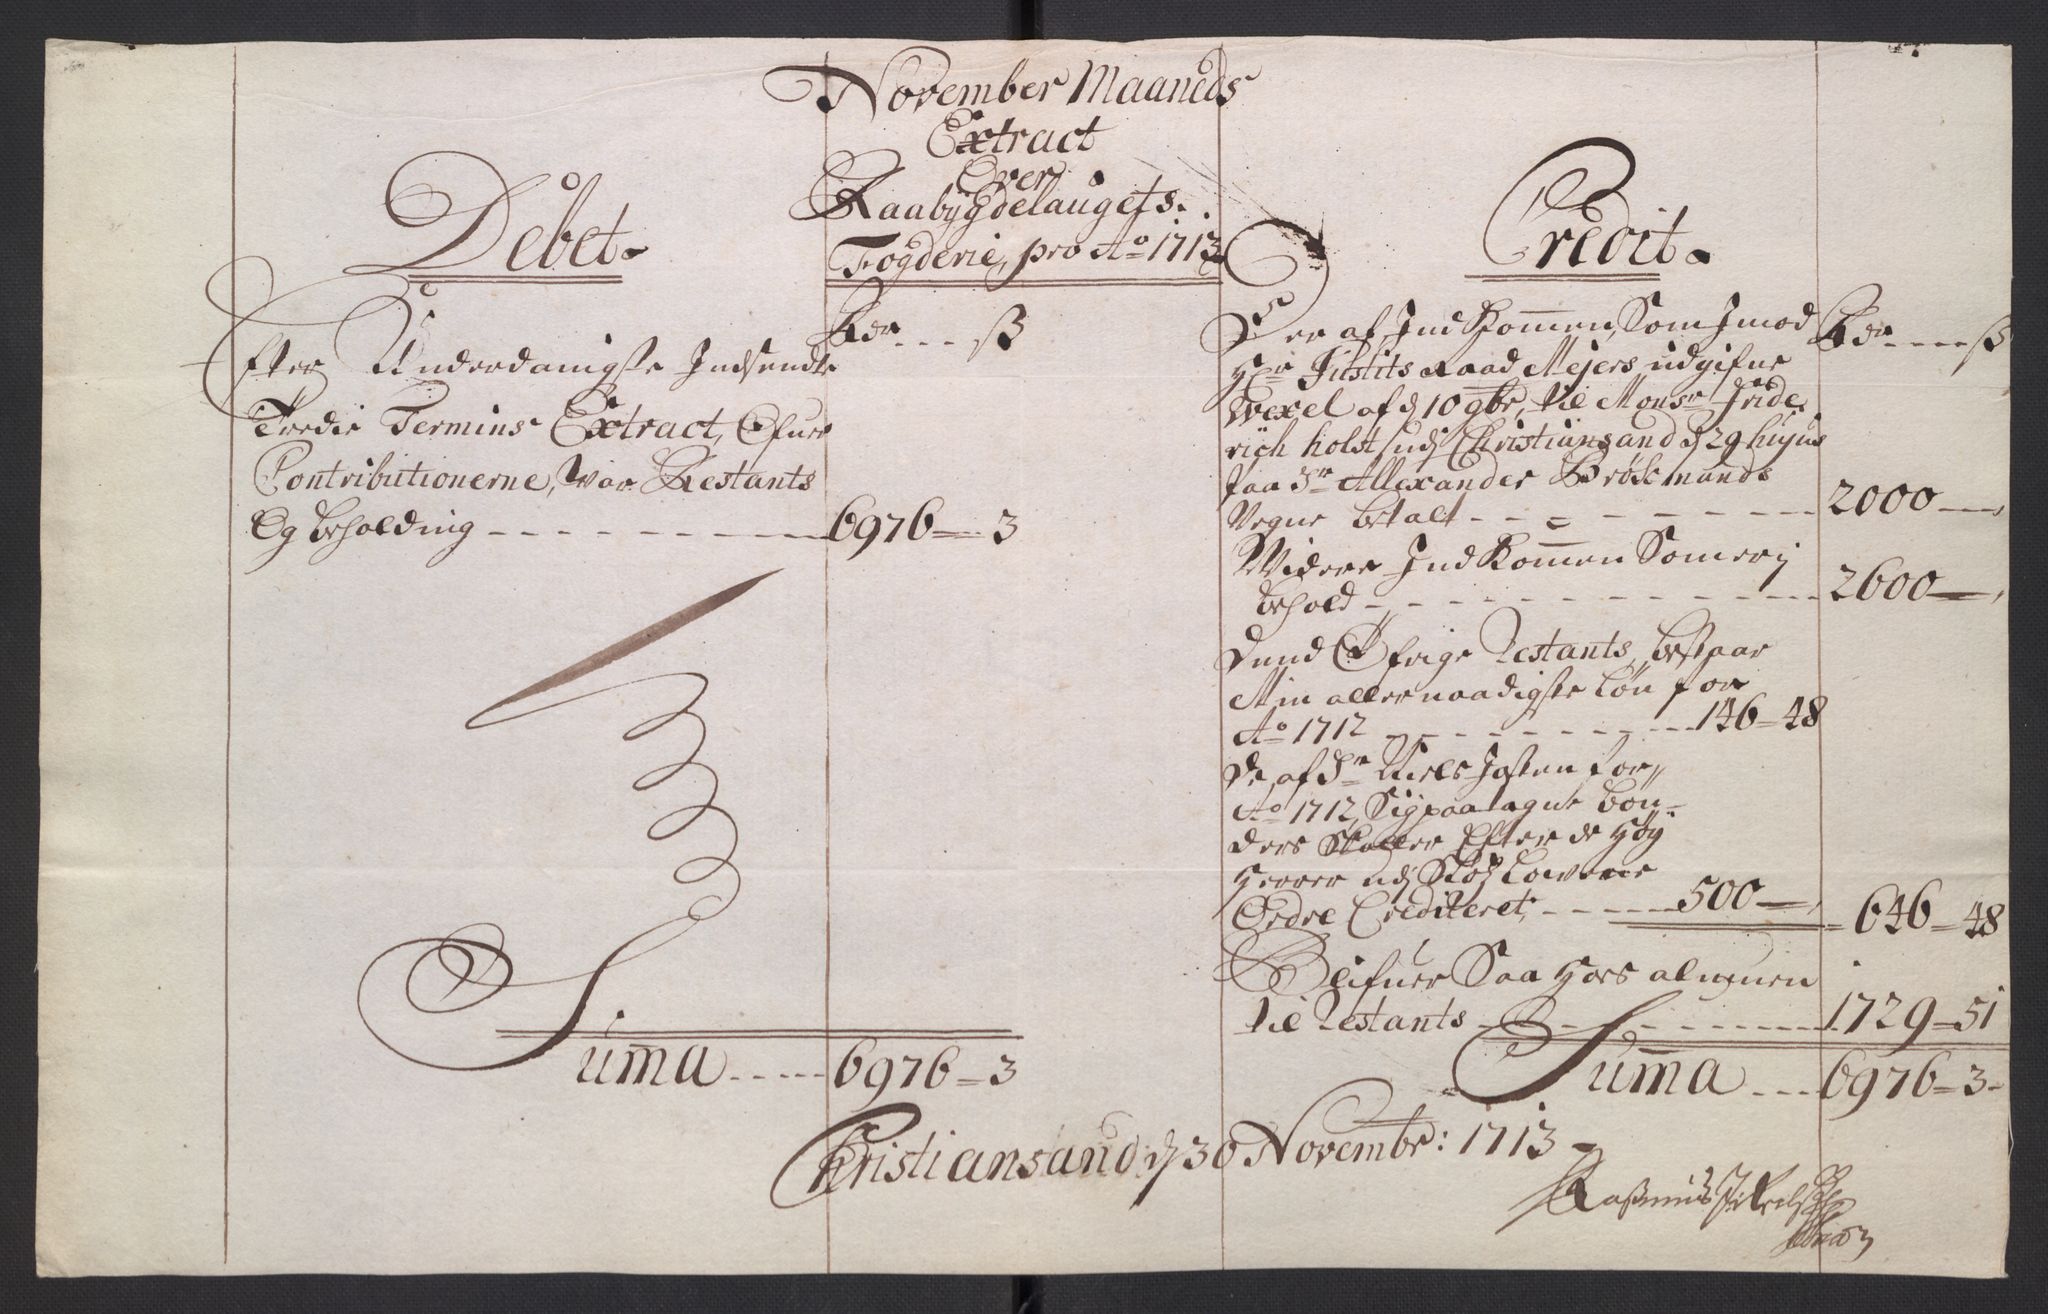 November Maaneds
Extract
Over
Raabygdelaugets
Fogderie, pro Ao 1713
Debet
Rdr ß
Efter Underdanigste Indsendte
Tredie Termins Extract, Ofuer
Contributionerne, war Restants
Og beholding 6976 3
Suma 6976 3
Credit
Rdr ß
Der af IndKommen, Som Imod
Hr Justits Raad Mejers udgifne
Wexel af d 10 9br, til Monsr Fride
rich holst udj Christiansand d 29 hujus
paa Sr Allexander Brøkmands
Vegne betalt 2000
Widere IndKommen Som er i
behold 2600
Dend Øfrige Restants, bestaar
Min allernaadigste Løn for
Ao 1712 146 48
De af Sr Niels for
Ao 1712 paalagne Bøn
ders Skatter Efter de Høy
Herrer udj
Ordre Crediteret 500 646 48
Blifuer Saa hoes almuen
til Restants 1729 51
Suma 6976 3
Christiansand d 30 Novembr: 1713
Rasmus